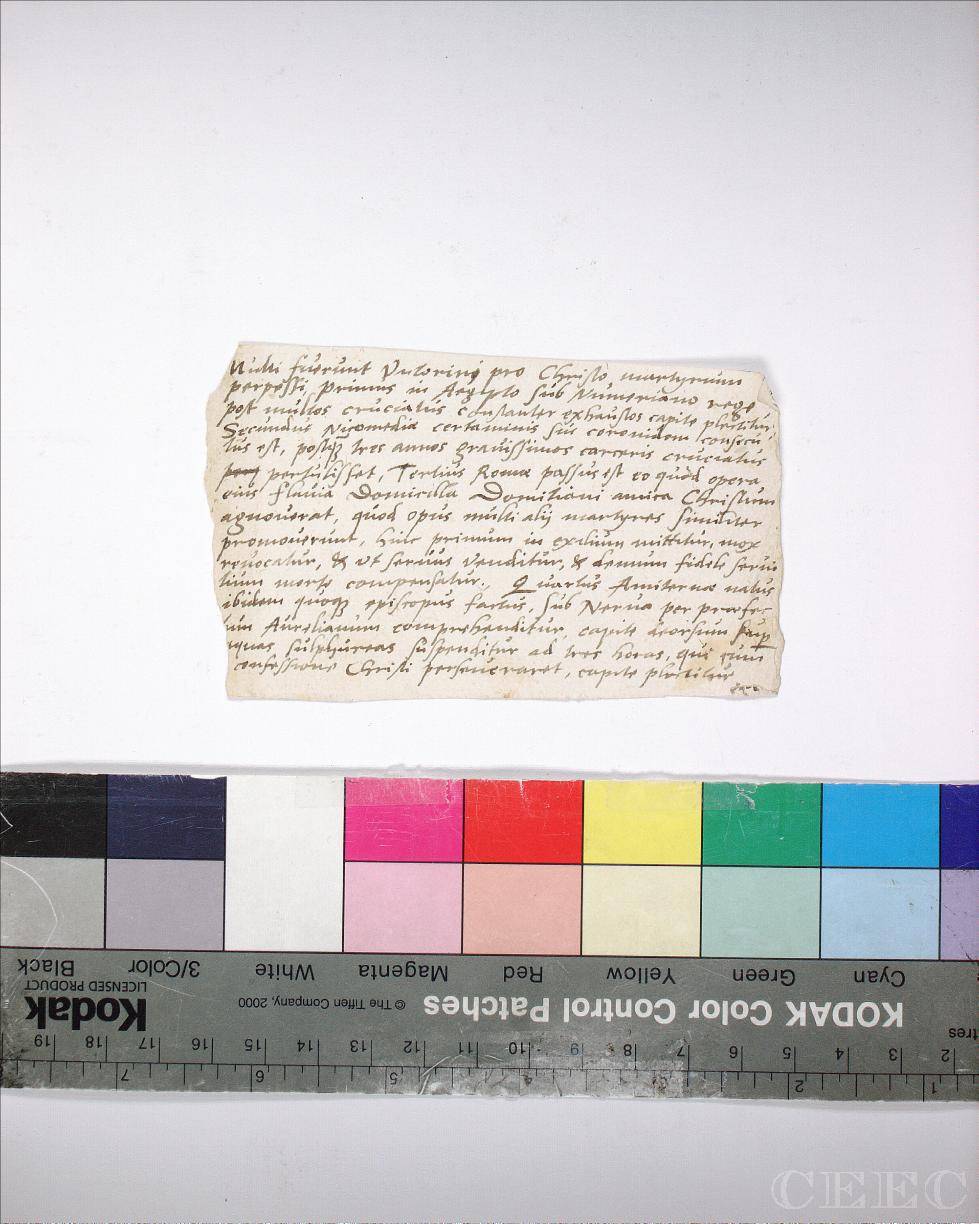 Multi fuerunt Victorini pro Christo martyrium
perpessi, Primus in Aegipto sub Numeriano rege
post multos cruciatus constanter exhaustos capite plectitur
Secundus Nicomediæ certaminis sui coronidem consecu
tus est, postqꝫ tres annos gravissimos carceris cruciatus
pertulisset, Tertius Romæ passus est eo quod opera
eius Flavia Domicilla Domitiani amica Christum
agnoverat, quod opus multi alij martyres similiter
promoverunt, huic primum in exilium mittitur, mox
revocatur, & ut servus venditur, & demum fidele servi
tium morte compensatur. Quartus Amiternæ natus
ibidem quoqꝫ episcopus factus, sub Nerva per præfec
um Aurelianum comprehenditur, capite deorsum sup
aquas sulphureas suspenditur ad tres horas, qui cum
confessione Christi perseveraret, capite plectitur
KODAK Color Control Patches
© The Tiffen Company, 2000
Kodak
LICENSED PRODUCT
Cyan Green Yellow Red Magenta White 3/Color Black
tres 2 3 4 5 6 7 8 9 10 11 12 13 14 15 16 17 18 19
1 2 4 5 6 7
CEEC